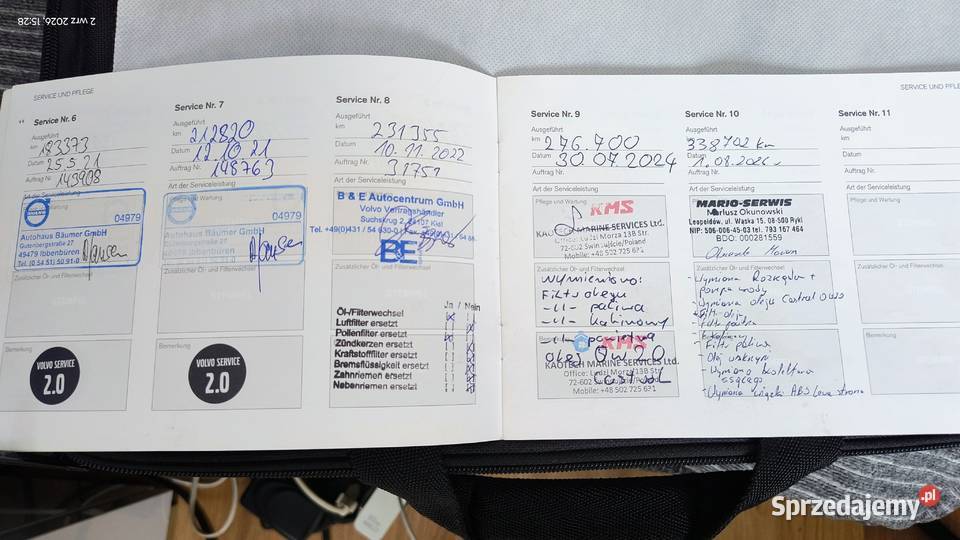 2 wrz 2026, 15:28
SERVICE UND PFLEGE
Service Nr. 6
Ausgeführt
km 183373
Datum 25.5.21
Auftrag Nr. 143908
Art der Serviceleistung
04979
Autohaus Bäumer GmbH
Gutenbergstraße 27
49479 Ibbenbüren
Tel. (0 54 51) 50 91-0
Zusätzlicher Öl- und Filterwechsel
Bemerkung
VOLVO SERVICE
2.0
Service Nr. 7
Ausgeführt
km 212820
Datum 12.10.21
Auftrag Nr. 148763
Art der Serviceleistung
Pflege und Wartung
04979
Autohaus Bäumer GmbH
Gutenbergstraße 27
49479 Ibbenbüren
Tel. (0 54 51) 50 91-0
Zusätzlicher Öl- und Filterwechsel
Bemerkung
VOLVO SERVICE
2.0
Service Nr. 8
Ausgeführt
km 231355
Datum 10.11.2022
Auftrag Nr. 31751
Art der Serviceleistung
B & E Autocentrum GmbH
Volvo Vertragshändler
Suchskrug 2, 24107 Kiel
BE
Zusätzlicher Öl- und Filterwechsel
Ja / Nein
Öl-/Filterwechsel
Luftfilter ersetzt
Pollenfilter ersetzt
Zündkerzen ersetzt
Kraftstofffilter ersetzt
Bremsflüssigkeit ersetzt
Zahnriemen ersetzt
Nebenriemen ersetzt
SERVICE UND PFLE
Service Nr. 9
Ausgeführt
km 276.700
Datum 30 07 2024
Auftrag Nr.
Art der Serviceleistung
Pflege und Wartung
KMS
KAOTECH MARINE SERVICES Ltd.
Office: Ludzi Morza 13B Str.
72-602 Swinoujscie/Poland
Mobile: +48 502 725 671
Zusätzlicher Öl- und Filterwechsel
Wymieniono:
Filtr oleju
-11- paliwa
-11- kabinowy
-11- powietrza
olej 0W20
Castrol
KMS
KAOTECH MARINE SERVICES Ltd.
Office: Ludzi Morza 13B Str.
72-602 Swinoujscie/Poland
Mobile: +48 502 725 671
Service Nr. 10
Ausgeführt
338702 km
Auftrag Nr.
Art der Serviceleistung
Pflege und Wartung
MARIO-SERWIS
Mariusz Okunowski
Leopoldów, ul. Waska 15, 08-500 Ryki
NIP: 506-006-45-03 tel. 793 167 464
BDO: 000281559
Zusätzlicher Öl- und Filterwechsel
- Wymiana Rozrządu +
pompa wody
- Wymiana oleju Castrol 0W20
- Filtr oleju
- Filtr paliwa
- Olej
- Wymiana
ssącego
- Wymiana Wiązki ABS Lewa strona
Service Nr. 11
Ausgeführt
km
Datum
Auftrag Nr.
Art der Serviceleistung
Pflege und Wartung
Zusätzlicher Öl- und Filterwechsel
Bemerkung
Sprzedajemy.pl